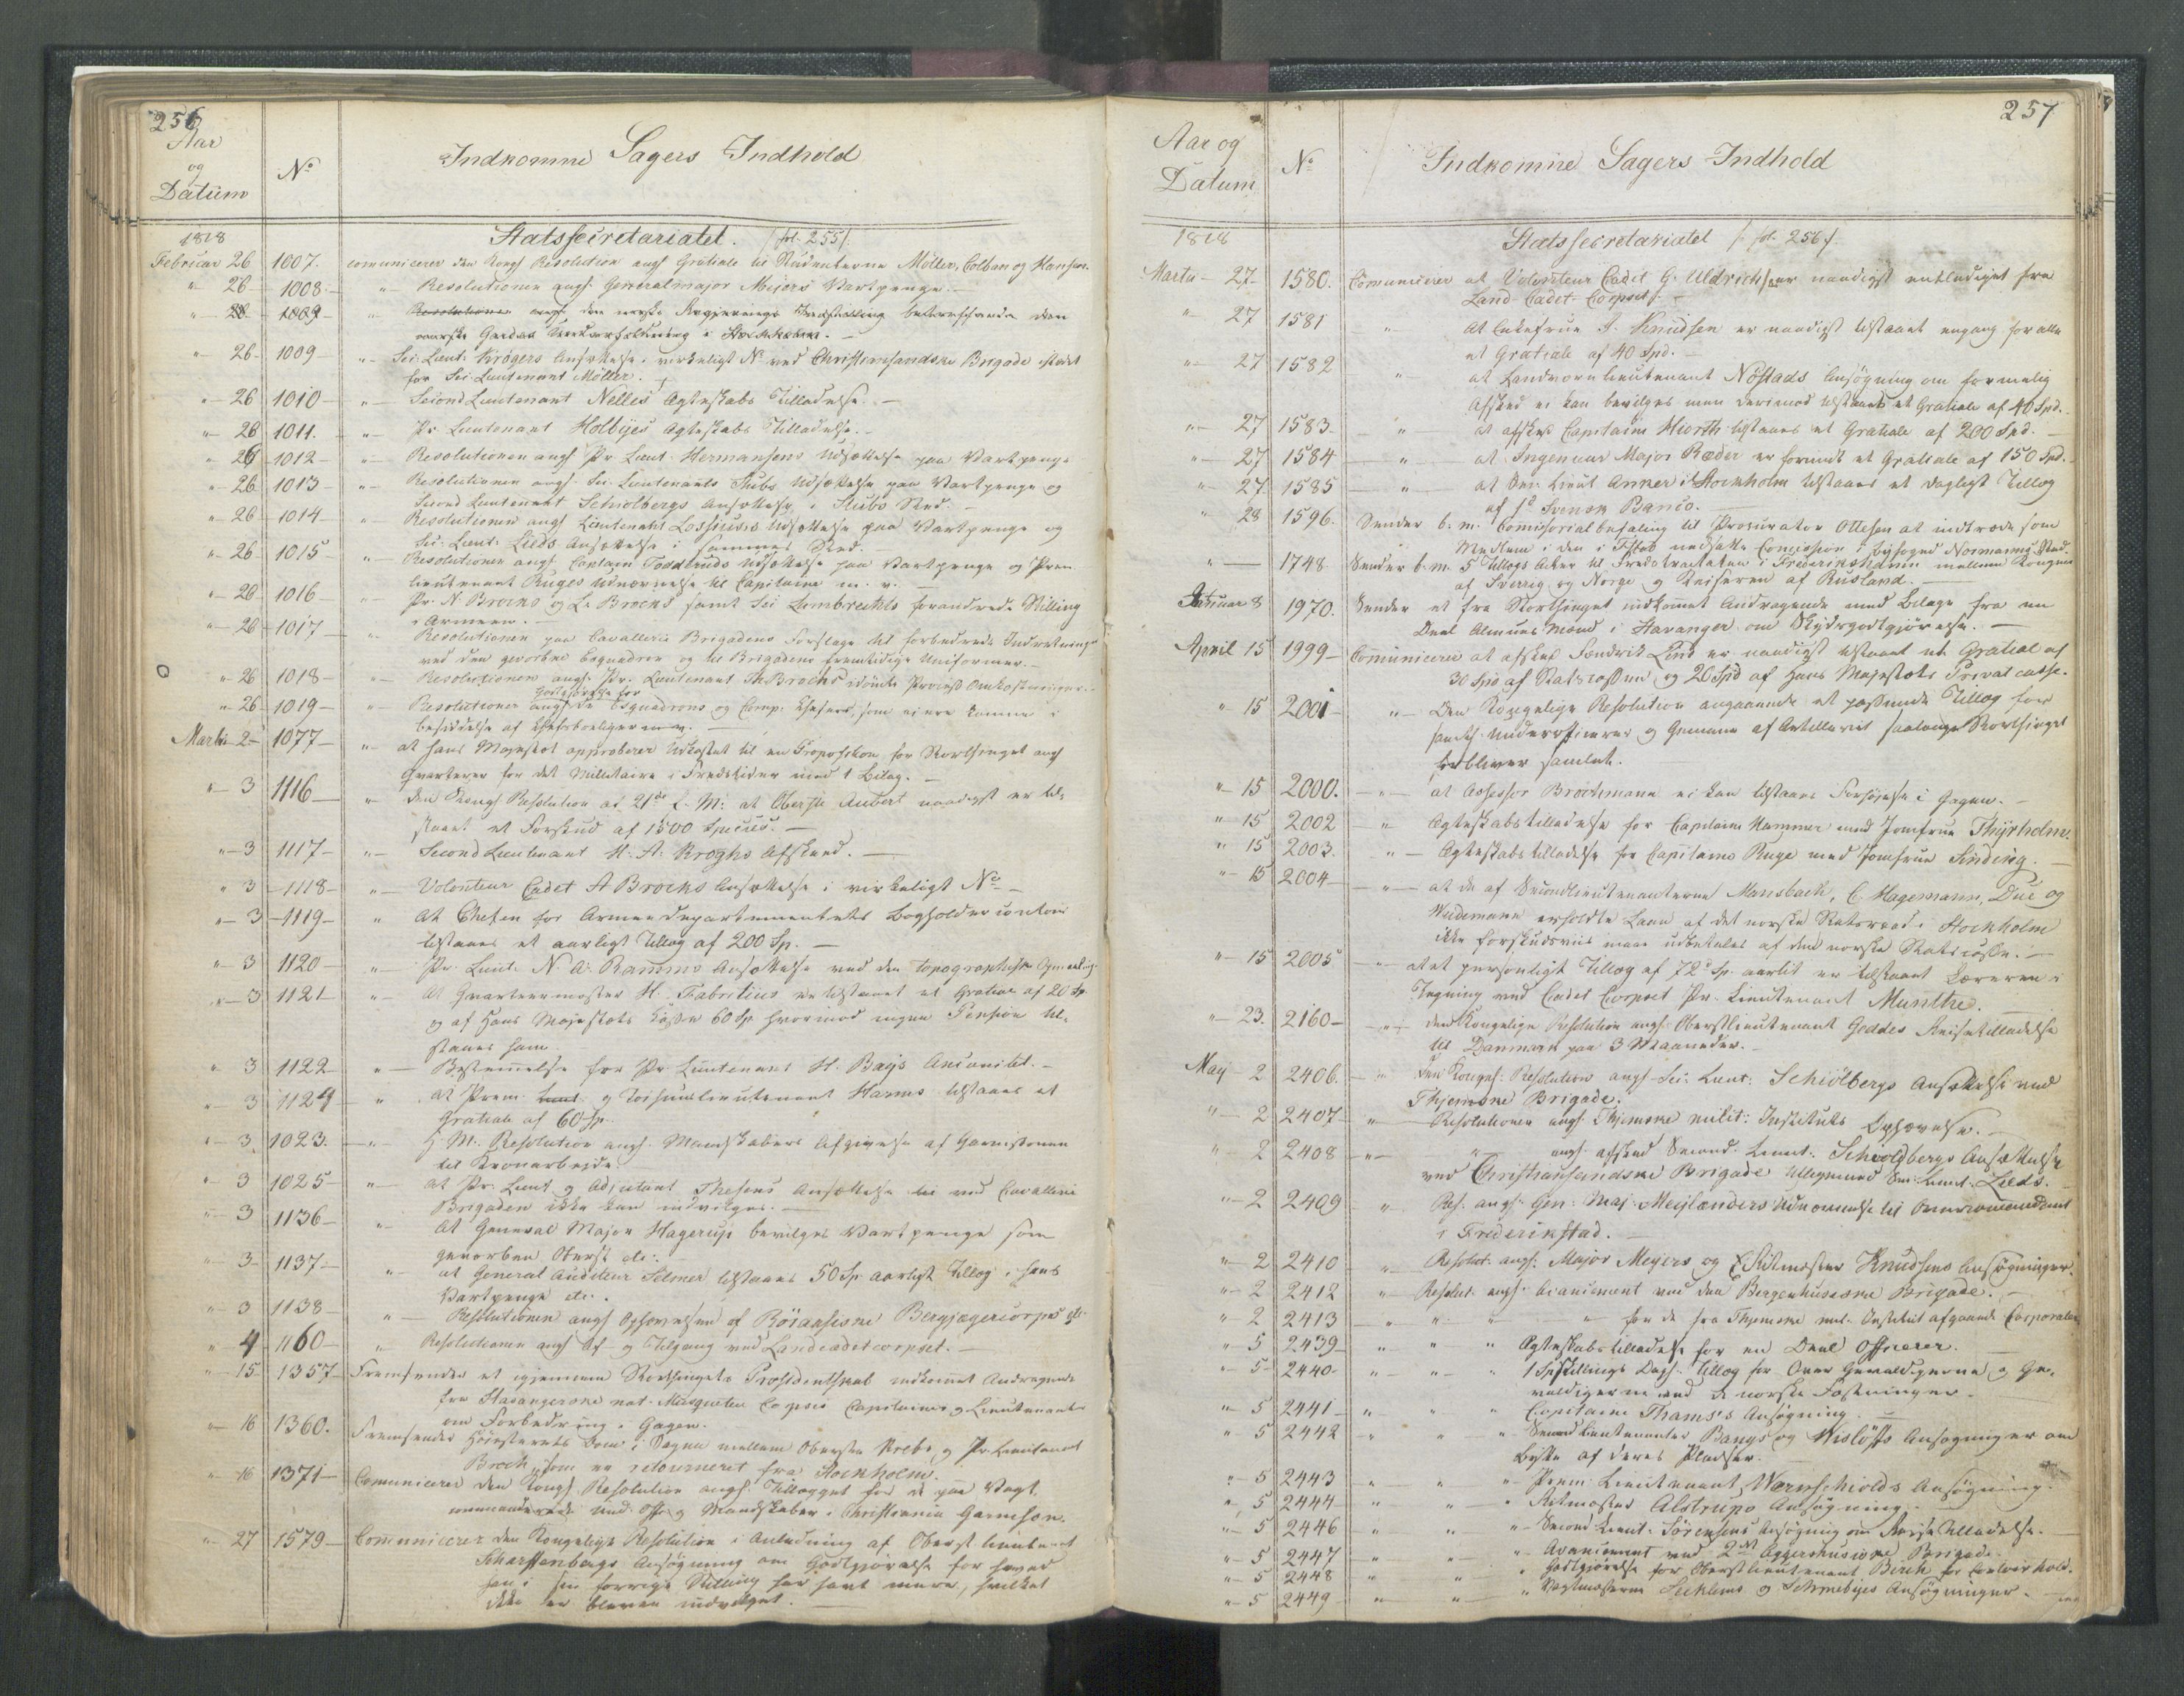 256
Aar
og
Datum
No
Indkomne Sagers Indhold
Statssecretariatet. /fol. 255/.
1818
Februar 26 1007. communicerer den Kongl Resolution angl Gratiale til Studenterne Möller, Colban og Hansen.
" 26 1008. " Resolutionen angl. Generalmajor Meiers Vartpenge. —
" 28 1009 " Resolutionen angl. den norske Regjerings Indstilling betræffende den
norske Gardes i Stockholm. —
" 26 1009 " Sec: Lieut: Krøgers Ansættelse i virkeligt No ved Christiansandske Brigade istedet
for Sec: Lieutenant Möller.
" 26 1010 " Second Lieutenant Nelles Ægteskabs Tilladelse. —
" 26 1011. " Pr. Lieutenant Holbyes Ægteskabs Tilladelse. —
" 26 1012 " Resolutionen angl Pr Lieut. Hermansens Udsættelse paa Vartpenge
" 26 1013 " Resolutionen angl. Sec: Lieutenants Stubs Udsættelse paa Vartpenge og
Second Lieutenant Schiolbergs Ansættelse i Stubs Sted. —
" 26 1014 " Resolutionen angl Lieutenant Lossiuses Udsættelse paa Vartpenge og
Sec: Lieut: Lieds Ansættelse i sammes Sted. —
" 26 1015 " Resolutionen angl. Captain Todderuds Udsættelse paa Vartpenge og Prem.
lieutenant Ruges Udnævnelse til Capitaine m. v.
" 26 1016 " Pr. N. Brocks og L. Brocks samt Sec Lambrechts forandrede Stilling
i Armeen. —
" 26 1017 " Resolutionen paa Cavallerie Brigadens Forslage til forbedrede Indretninger
ved den gevorbne Esquadron og til Brigadens fremtidige Uniformer. —
" 26 1018 " Resolutionen angl. Pr. Lieutenant Th Brocks idömte Proces Omkostninger. —
Godtgjörelse for
" 26 1019 " Resolutionen angl de Esquadrons og Comp. Chefer, som ei ere komne i
besiddelse af Chefsboeliger m. v. —
Martii 2 1077 " at hans Majestæt approberer Udkastet til en Proposition for Storthinget angl
Qvarterer for det Militaire i Fredstider med 1 Bilag. —
" 3 1116 " den Kongl Resolution ad 21de f. M: at Oberste Aubert naadigst er til-
staaet et Forskud af 1500 Species. —
" 3 1117 " Second Lieutenant H. A. Kroghs Afskeed. —
" 3 1118 " Volonteur Cadet A Brocks Ansættelse i virkeligt No —
" 3 1119 " At Chefen for Armeedepartementets Bogholdercontoir
tilstaaes et aarligt Tillæg af 200 Sp. —
" 3 1120 " Pr. Lieut. N. A. Ramms Ansættelse ved den topographiske Opmaaling.
" 3 1121 " At Qvarteermester H. Fabritius er tilstaaet et Gratiale af 20 Sp.
og af Hans Majestæts Casse 60 Sp hvormod ingen Pension til-
staaes ham.
" 3 1122 " Bestemmelse for Pr. Lieutenant H. Bays Ancienitet. —
" 3 1124 " At Prem Lieut og Toihuuslieutenant Harms tilstaaes et
Gratiale af 60 Sp.
" 3 1023. " H. M. Resolution angl. Mandskabers Afgivelse af Garnisonen
til Kronarbeide.
" 3 1025 " at Pr. Lieut og Adjutant Thesens Ansættelse ved Cavallerie
Brigaden ikke kan indvilges. —
" 3 1136 " At General Major Hagerup bevilges Vartpenge som
gevorben Oberst etc:
" 3 1137 " at General Auditeur Selmer tilstaaes 50 Sp. aarligt Tillæg i hans
Vartpenge etc. —
" 3 1138 " Resolutionen angl Ophævelsen af Röraasiske Bergjægercorps etc
" 4 1160 " Resolutionen angl Af- og Tilgang ved Landcadetcorpset. —
" 15 1357 Fremsender et igjennem Storthingets Præsidentskab indkommet Andragende
fra Stavangerske nat. Musqueteer Corpses Capitainer og Lieutenanter
om Forbedring i Gagen.
" 16 1360. Fremsender Höiesterets Dom i Sagen mellem Oberste Krebs og Pr. Lieutenant
Brock, som er retourneret fra Stockholm.
" 16 1371 Comunicerer den Kongl. Resolution angl. Tillægget for de paa Vagt
commanderede Und. Off. og Mandskaber i Christiania Garnison.
" 27 1579 Communicerer den Kongelige Resolution i Anledning af Oberst lieutenant
Scharffenbergs Ansögning om Godtgjörelse for hvad
han i sin forrige Stilling har havt mere, hvilket
ikke er bleven indvilget. —
257
Aar og
Datum
No
Indkomne Sagers Indhold
1818
Statssecretariatet /fol. 256/.
Martii 27 1580. Comunicerer at Volonteur Cadet G. Uldrich er naadigst entlediget fra
Land-Cadet-Corpset. —
" 27 1581 " At Enkefrue A. Knudsen er naadigst tilstaaet engang for alle
et Gratiale af 40 Spd. —
" 27 1582 " at Landværnlieutenant Nöstads Ansögning om formelig
Afsked ei kan bevilges men derimod tilstaaes et Gratiale af 40 Spd.
" 27 1583 " at afsked Capitaine Hiorth tilstaaes et Gratiale af 200 Spd. —
" 27 1584 " at Ingenieur Major Ræder er forundt et Gratiale af 150 Spd.
" 27 1585 " at Sec: Lieut Anker i Stockholm tilstaaes et dagligt Tillæg
af 1d Svensk Banco. —
" 28 1596. Sender b. m. Comissorialbefaling til Procurator Ottesen at indtræde som
Medlem i den nedsatte Comission i Byfoged Normanns Sted.
" — 1748 Sender b. m. 5 Tillægs Acter til Fredstractaten i Frederikshamn mellem Kongen
af Sverrig og Norge og Keiseren af Rusland. —
Februar 8 1970. Sender et fra Storthinget indkommet Andragende med Bilage fra en
Deel Almues Mænd i Stavanger om Skydsgodtgjörelse. —
April 15 1999 Communicerer at afsked Fændrik Lind er naadigst tilstaaet et Gratial af
30 Spd af Statscassen og 20 Spd af Hans Majestæts Privat casse.
" 15 2001 " Den Kongelige Resolution angaaende et passende Tillæg for
samtl. Underofficerer og Gemene af Artilleriet saalænge Storthinget
forbliver samlet.
" 15 2000. " at Assessor Brochmann ei kan tilstaaes Forhöielse i Gagen. —
" 15 2002 " Ægteskabstilladelse for Capitaine Hammer med Jomfrue Thyrholm.
" 15 2003. " Ægteskabstilladelse for Capitaine Ruge med Jomfrue Sinding. —
" 15 2004 " at de af Secondlieutenanterne Mansbach, C. Hagemann, Due og
Wedemann erholdte Laan af det norske Statsraad i Stockholm
ikke forskudsviis maae udbetales af den norske Statscasse. —
" 15 2005 " at et personligt Tillæg af 72 Sp. aarlit er tilstaaet Læreren i
Tegning ved Cadet Corpset Pr. Lieutenant Munthe.
" 23. 2160 " den Kongelige Resolution angl. Oberstlieutenant Geddes Reisetilladelse
til Danmark paa 3 Maaneder. —
May 2 2406. " den Kongel: Resolution angl. Sec: Lieut: Schiölbergs Ansættelse ved
Thjemske Brigade.
" 2 2407 " Resolutionen angl. Thjemske milit: Instituts Ophævelse. —
" 2 2408 " " angl. afsked Second. Lieut: Schioldbergs Ansættelse
ved Christiansandske Brigade ligesaa Sec: Lieut: Lieds.
" 2 2409 " Res. angl. Gen: Maj: Meylænders Udnævnelse til Overcomendant
i Frederikstad. —
" 2 2410 " Resolut: angl: Major Meyers og Ritmester Knudsens Ansögninger.
" 2 2412 " Resolut: angl. Avancement ved den Bergenhusiske Brigade. —
" 2 2413 " " " for de fra Thjemske mil. Institut afgaaede Corporaler
" 5 2439 " " " Ægteskabstilladelse for en Deel Officerer. —
" 5 2440 " " " 1 Spskillings Dagl. Tillæg for Over Gevaldigerne og Ge-
valdigerne ved de norske Fæstninger. —
" 5 2441 " " " Capitaine Thams's Ansögning. —
" 5 2442 " " " Secondlieutenanter Bangs og Wislöffs Ansögninger om
Bytte af deres Pladser.
" 5 2443 " " " Prem: Lieutenant Wærnschiolds Ansögning.
" 5 2444 " " " Ritmester Alstrups Ansögning. —
" 5 2446 " " " Second Lieut: Sörensens Ansögning om Reise Tilladelse. —
" 5 2447 " " " Avancement ved 2det Aggershusiske Brigade.
" 5 2448 " " " Godtgjörelse for Oberstlieutenant Birch for Contoirhold.
" 5 2449 " " " Vagtmesterne Sechlems og Schmebyes Ansögninger. —